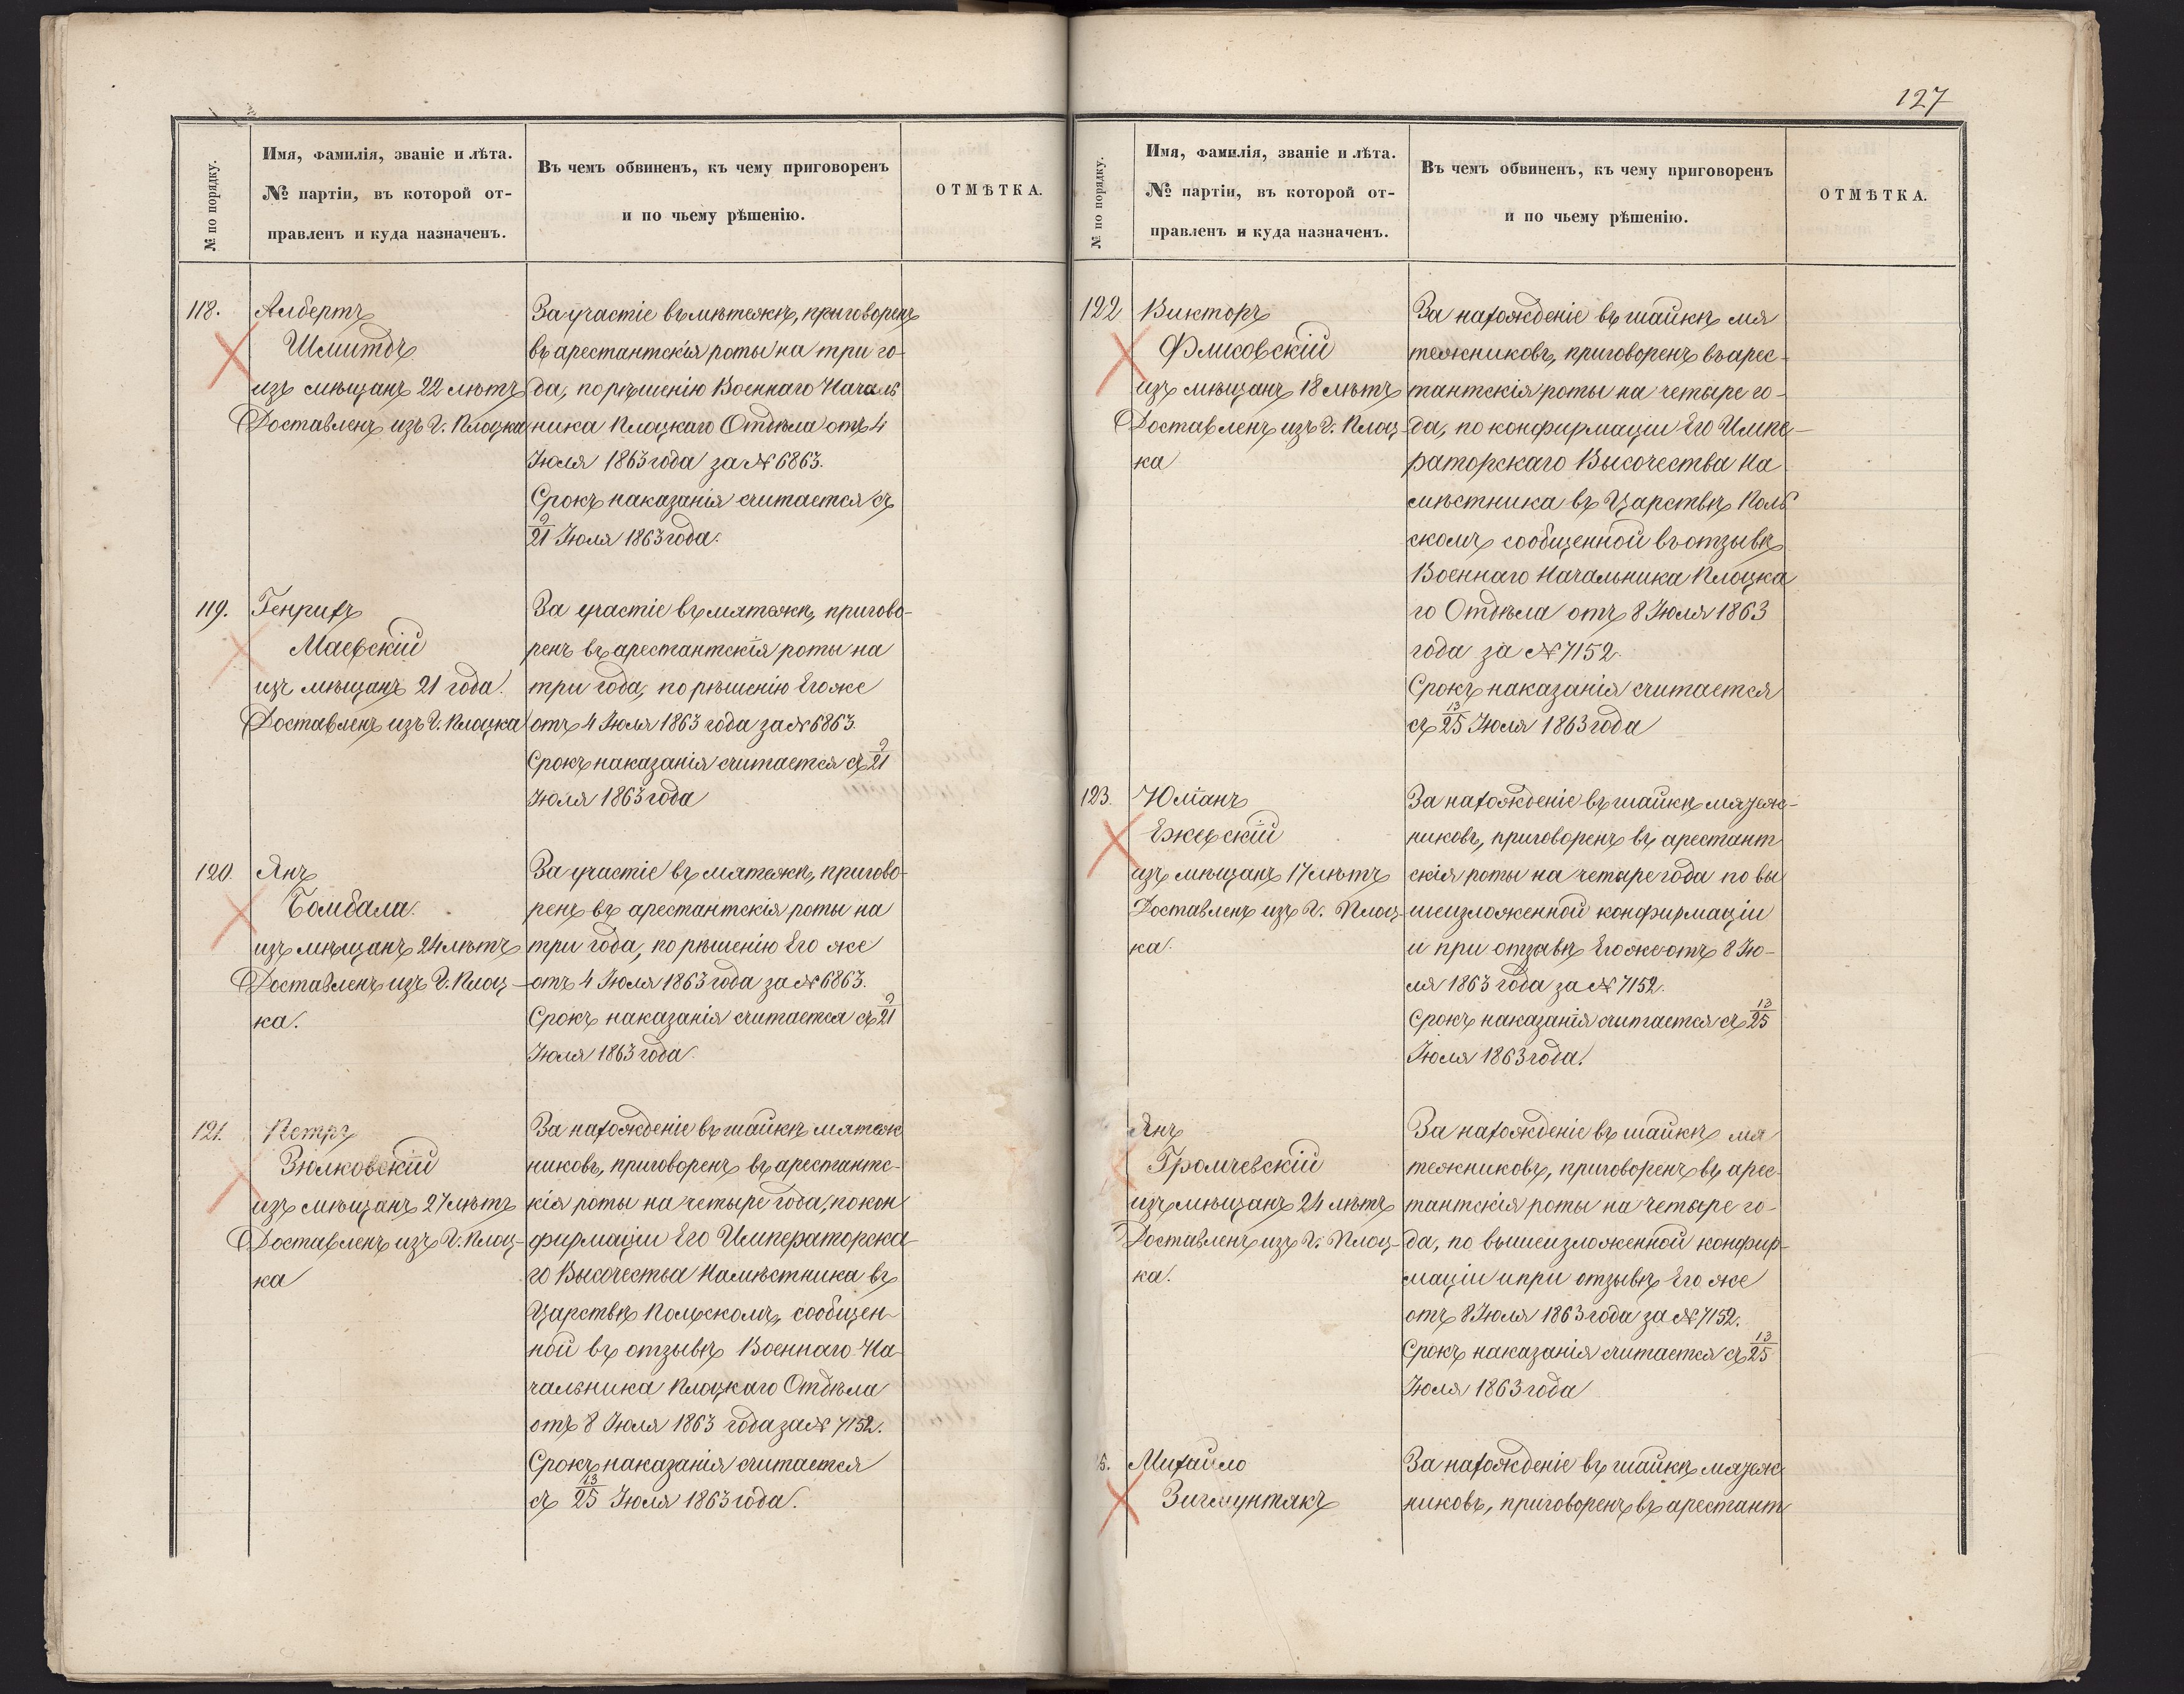 № по порядку.
Имя, фамилія, званіе и лѣта.
№ партіи, въ которой от-
правленъ и куда назначенъ.
Въ чемъ обвиненъ, къ чему приговоренъ
и по чьему рѣшенію.
ОТМѢТКА.
118.
Албертъ
Шмитдъ
изъ мѣщанъ 22 лѣтъ
Доставленъ изъ г. Плоцка
За участіе въ мятежѣ, приговоренъ
въ арестантскія роты на три го-
да, по рѣшенію Военнаго Началь
ника Плоцкаго Отдѣла отъ 4
Іюля 1863 года за № 6863.
Срокъ наказанія считается съ
9/21 Іюля 1863 года.
119.
Генрихъ
Маевскій
изъ мѣщанъ 21 года.
Доставленъ изъ г. Плоцка
За участіе въ мятежѣ, пригово-
ренъ въ арестантскія роты на
три года, по рѣшенію Его же
отъ 4 Іюля 1863 года за № 6863.
Срокъ наказанія считается съ 9/21
Іюля 1863 года
120.
Янъ
Бомбала.
изъ мѣщанъ 24 лѣтъ
Доставленъ изъ г. Плоц-
ка.
За участіе въ мятежѣ, пригово-
ренъ въ арестантскія роты на
три года, по рѣшенію Его же
отъ 4 Іюля 1863 года за № 6863.
Срокъ наказанія считается съ 9/21
Іюля 1863 года.
121.
Петръ
Зюлковскій
изъ мѣщанъ 27 лѣтъ
Доставленъ изъ г. Плоц-
ка
За нахожденіе въ шайкѣ мятеж
никовъ, приговоренъ въ арестантс-
кія роты на четыре года, по кон
фирмаціи Его Императорска-
го Высочества Намѣстника въ
Царствѣ Польскомъ, сообщен-
ной въ отзывѣ Военнаго На-
чальника Плоцкаго Отдѣла
отъ 8 Іюля 1863 года за № 7152.
Срокъ наказанія считается
съ 13/25 Іюля 1863 года.
127
№ по порядку.
Имя, фамилія, званіе и лѣта.
№ партіи, въ которой от-
правленъ и куда назначенъ.
Въ чемъ обвиненъ, къ чему приговоренъ
и по чьему рѣшенію.
ОТМѢТКА.
122
Викторъ
Фликовскій
изъ мѣщанъ 18 лѣтъ
Доставленъ изъ г. Плоц-
ка
За нахожденіе въ шайкѣ мя
тежниковъ, приговоренъ въ арес-
тантскія роты на четыре го-
да, по конфирмаціи Его Импе-
раторскаго Высочества На
мѣстника въ Царствѣ Поль
скомъ сообщенной въ отзывѣ
Военнаго Начальника Плоцка
го Отдѣла отъ 8 Іюля 1863
года за № 7152.
Срокъ наказанія считается
съ 13/25 Іюля 1863 года
123.
Юліанъ
Ежевскій
изъ мѣщанъ 17 лѣтъ
Доставленъ изъ г. Плоц-
ка.
За нахожденіе въ шайкѣ мятеж-
никовъ, приговоренъ въ арестант
скія роты на четыре года по вы
шеизложенной конфирмаціи
и при отзывѣ Его же отъ 8 Ію-
ля 1863 года за № 7152.
Срокъ наказанія считается съ 13/25
Іюля 1863 года.
Янъ
Громчевскій
изъ мѣщанъ 24 лѣтъ
Доставленъ изъ г. Плоц-
ка.
За нахожденіе въ шайкѣ мя
тежниковъ, приговоренъ въ арес-
тантскія роты на четыре го-
да, по вышеизложенной конфир-
маціи и при отзывѣ Его же
отъ 8 Іюля 1863 года за № 7152.
Срокъ наказанія считается съ 13/25
Іюля 1863 года
5.
Михайло
Зигмунтякъ
За нахожденіе въ шайкѣ мятеж
никовъ, приговоренъ въ арестант